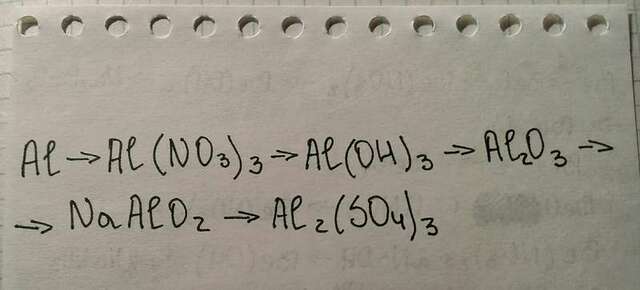 Al → Al(NO₃)₃ → Al(OH)₃ → Al₂O₃ →
→ NaAlO₂ → Al₂(SO₄)₃